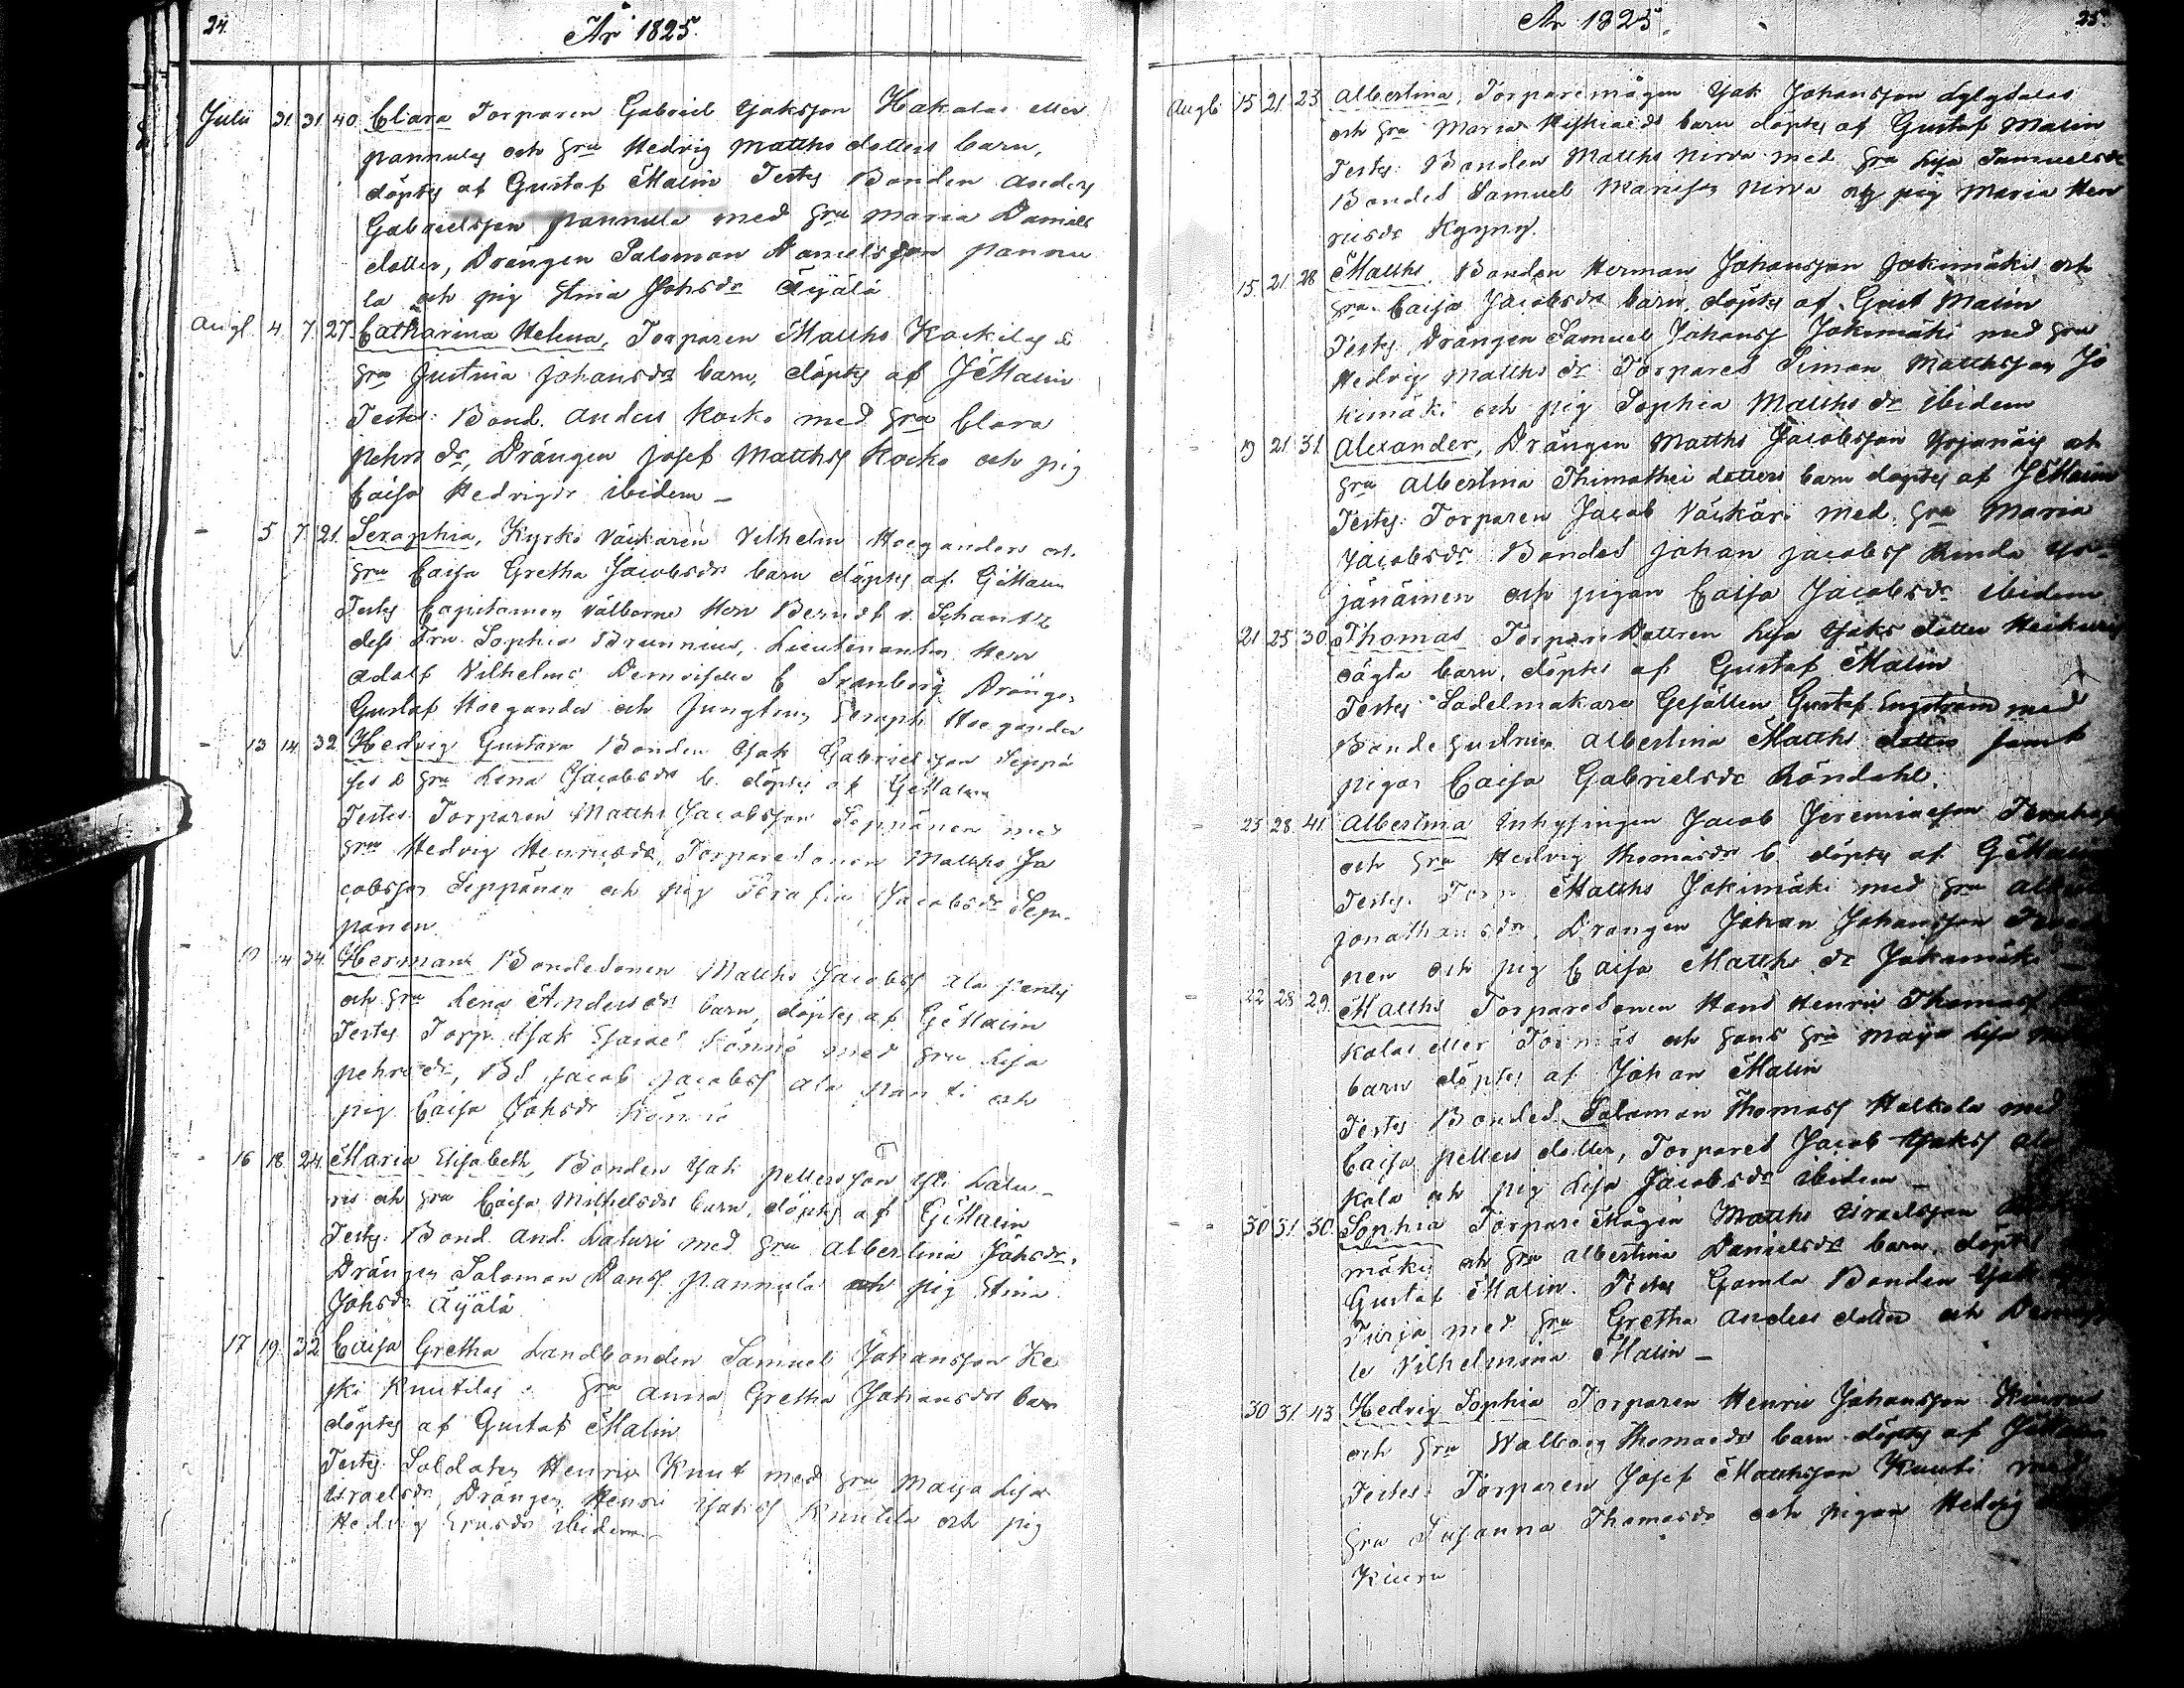 24.
År 1825.
Julii 31 31 40 Clara Torparen Gabriel Isaksson Hakalas eller
pannulas och hru Hedvig Matths dotters barn,
döptes af Gustaf Malin Testes Bonden Anders
Gabrielsson pannula med hru Maria Daniels
dotter, Drängen Salomon Danielsson pannu
la och pig Stina Johsdr Äijälä
Augt. 4. 7. 27. Catharina Helena, Torparen Matths Kockilas &
hru Justina Johansdrs barn, döptes af JEMalin
Testes: Bond. Anders Kocko med hru Clara
pehrsdr, Drängen Josef Matthss Kocko och pig
Caisa Hedvigsdr ibidem –
- 5 7 21. Seraphia, Kyrko Väcktaren Vilhelm Hoeganders och
hru Caisa Gretha Jacobsdrs barn döptes af GEMalin
Testes Capitainen Välborne Herr Berndt v. Schantz
dess Fru Sophia Brunnius, Lieutenanten Herr
Adolf Vilhelms Demoiselle C Granborg Dränge,
Gustaf Hoegander och Jungfrun Seraph Hoegander
- 13 14 32 Hedvig Gustava Bonden Isak Gabrielsson Seppä
ses & hru Lena Jacobsdrs b. döptes af GEMalin
Testes: Torparen Matths Jacobsson Seppänen med
hru Hedvig Henricsdr, Torparesonen Matths Ja
cobsson Seppänen och pig Serafia Jacobsdr Sep-
pänen.
- 10 14 34. Herman Bondesonen Matths Jacobss Ala pentis
och hru Lena Andersdrs barn, döptes af GEMalin
Testes Torp. Isak Könnö med hru Lisa
pehrsdr, BS Jacob Jacobss Ala panti och
pig. Caisa Johsdr Könnö
- 16 18 24. Maria Elisabeth, Bonden Isak pettersson Yli Latu-
ris och hru Caisa Mithelsdrs barn, döptes af GEMalin
Testes: Bond. And. Laturi med hru Albertina Johsdr.
Drängen Salomon Danss pannula och pig Stina
Johsdr Äijälä
17 19. 32 Caisa Gretha Landbonden Samuel Johansson Ke
ski Knutilas hru Anna Gretha Johansdrs barn
döptes af Gustaf Malin
Testes: Soldaten Henric Knut med hru Maija Lisa
Israelsdr, Drängen Henric Isakss Knutila och pig
Hedvig Ersdr ibidem –
Ar 1825.
25.
Augti 15 21. 23 Albertina, Torparemågen Isak Johansson Lylydales
och hru Maria barn döptes af Gustaf Malin
Testes: Bonden Matths Nirva med hru Lisa Samuelsdr
Bondes Samuel Nirva och pig Maria Hen
ricsdr Kyyny.
15. 21 28 Matths. Bonden Herman Johansson Jokimäkis och
hru. Caisa Jacobsdrs barn, döptes af Gust Malin
Testes: Drängen Samuel Johanss Jokimäki med hru
Hedvig Matthsdr Torpares Simon Matthsson Jo
kimäki och pig Sophia Matthsdr ibidem
- 19 21 31. Alexander, Drängen Matths Jacobsson Yrjanäis och
hru Albertina Thimothei dotters barn döptes af JEMalin
Testes: Torparen Jacob Väskäri med hru Maria
Jacobsdr Bondes Johan Jacobss Yr-
jänäinen och pigan Caisa Jacobsdr ibidem
21 25 30. Thomas Torpare Dottren Lisa Isaks dotter
oägta barn, döptes af Gustaf Malin
Testes Sadelmakare Gesällen Gustaf Engström med
Bondehustrun Albertina Matths dotter samt
pigan Caisa Gabrielsdr Röndahl.
- 23 28. 41. Albertina Inhysingen Jacob Jeremiasson
och hru Hedvig Thomasdrs b. döptes af GEMalin
Testes. Torp. Matths Jokimäki med hru
Jonathansdr. Drängen Johan Johansson
nen och pig Caisa Matthsdr Jokimäki –
- 22 28 29. Matths Torparesonen Hans Henric Thomass
kalas eller Tormäs och hans hru Maija Lisa
barn döptes af Johan Malin
Testes Bondes Salomon Thomass Halkola med
Caisa petters dotter, Torpares Jacob Isakss
kala och pig Lisa Jacobsdr ibidem –
- - 30 31. 30. Sophia Torpare Mågen Matths Israelsson
mäkis och hru Albertina Danielsdrs barn, döptes
Gustaf Malin. Testes Gamla Bonden Isak
Turja med hru Gretha Anders dotter och
le Vilhelmina Malin –
30 31 43 Hedvig Sophia Torparen Henric Johansson
och hru Walborg Thomasdrs barn döptes af JEMalin
Testes: Torparen Josef Matthsson Knuti med
hru Susanna Thomasdr och pigan Hedvig
Kiuru